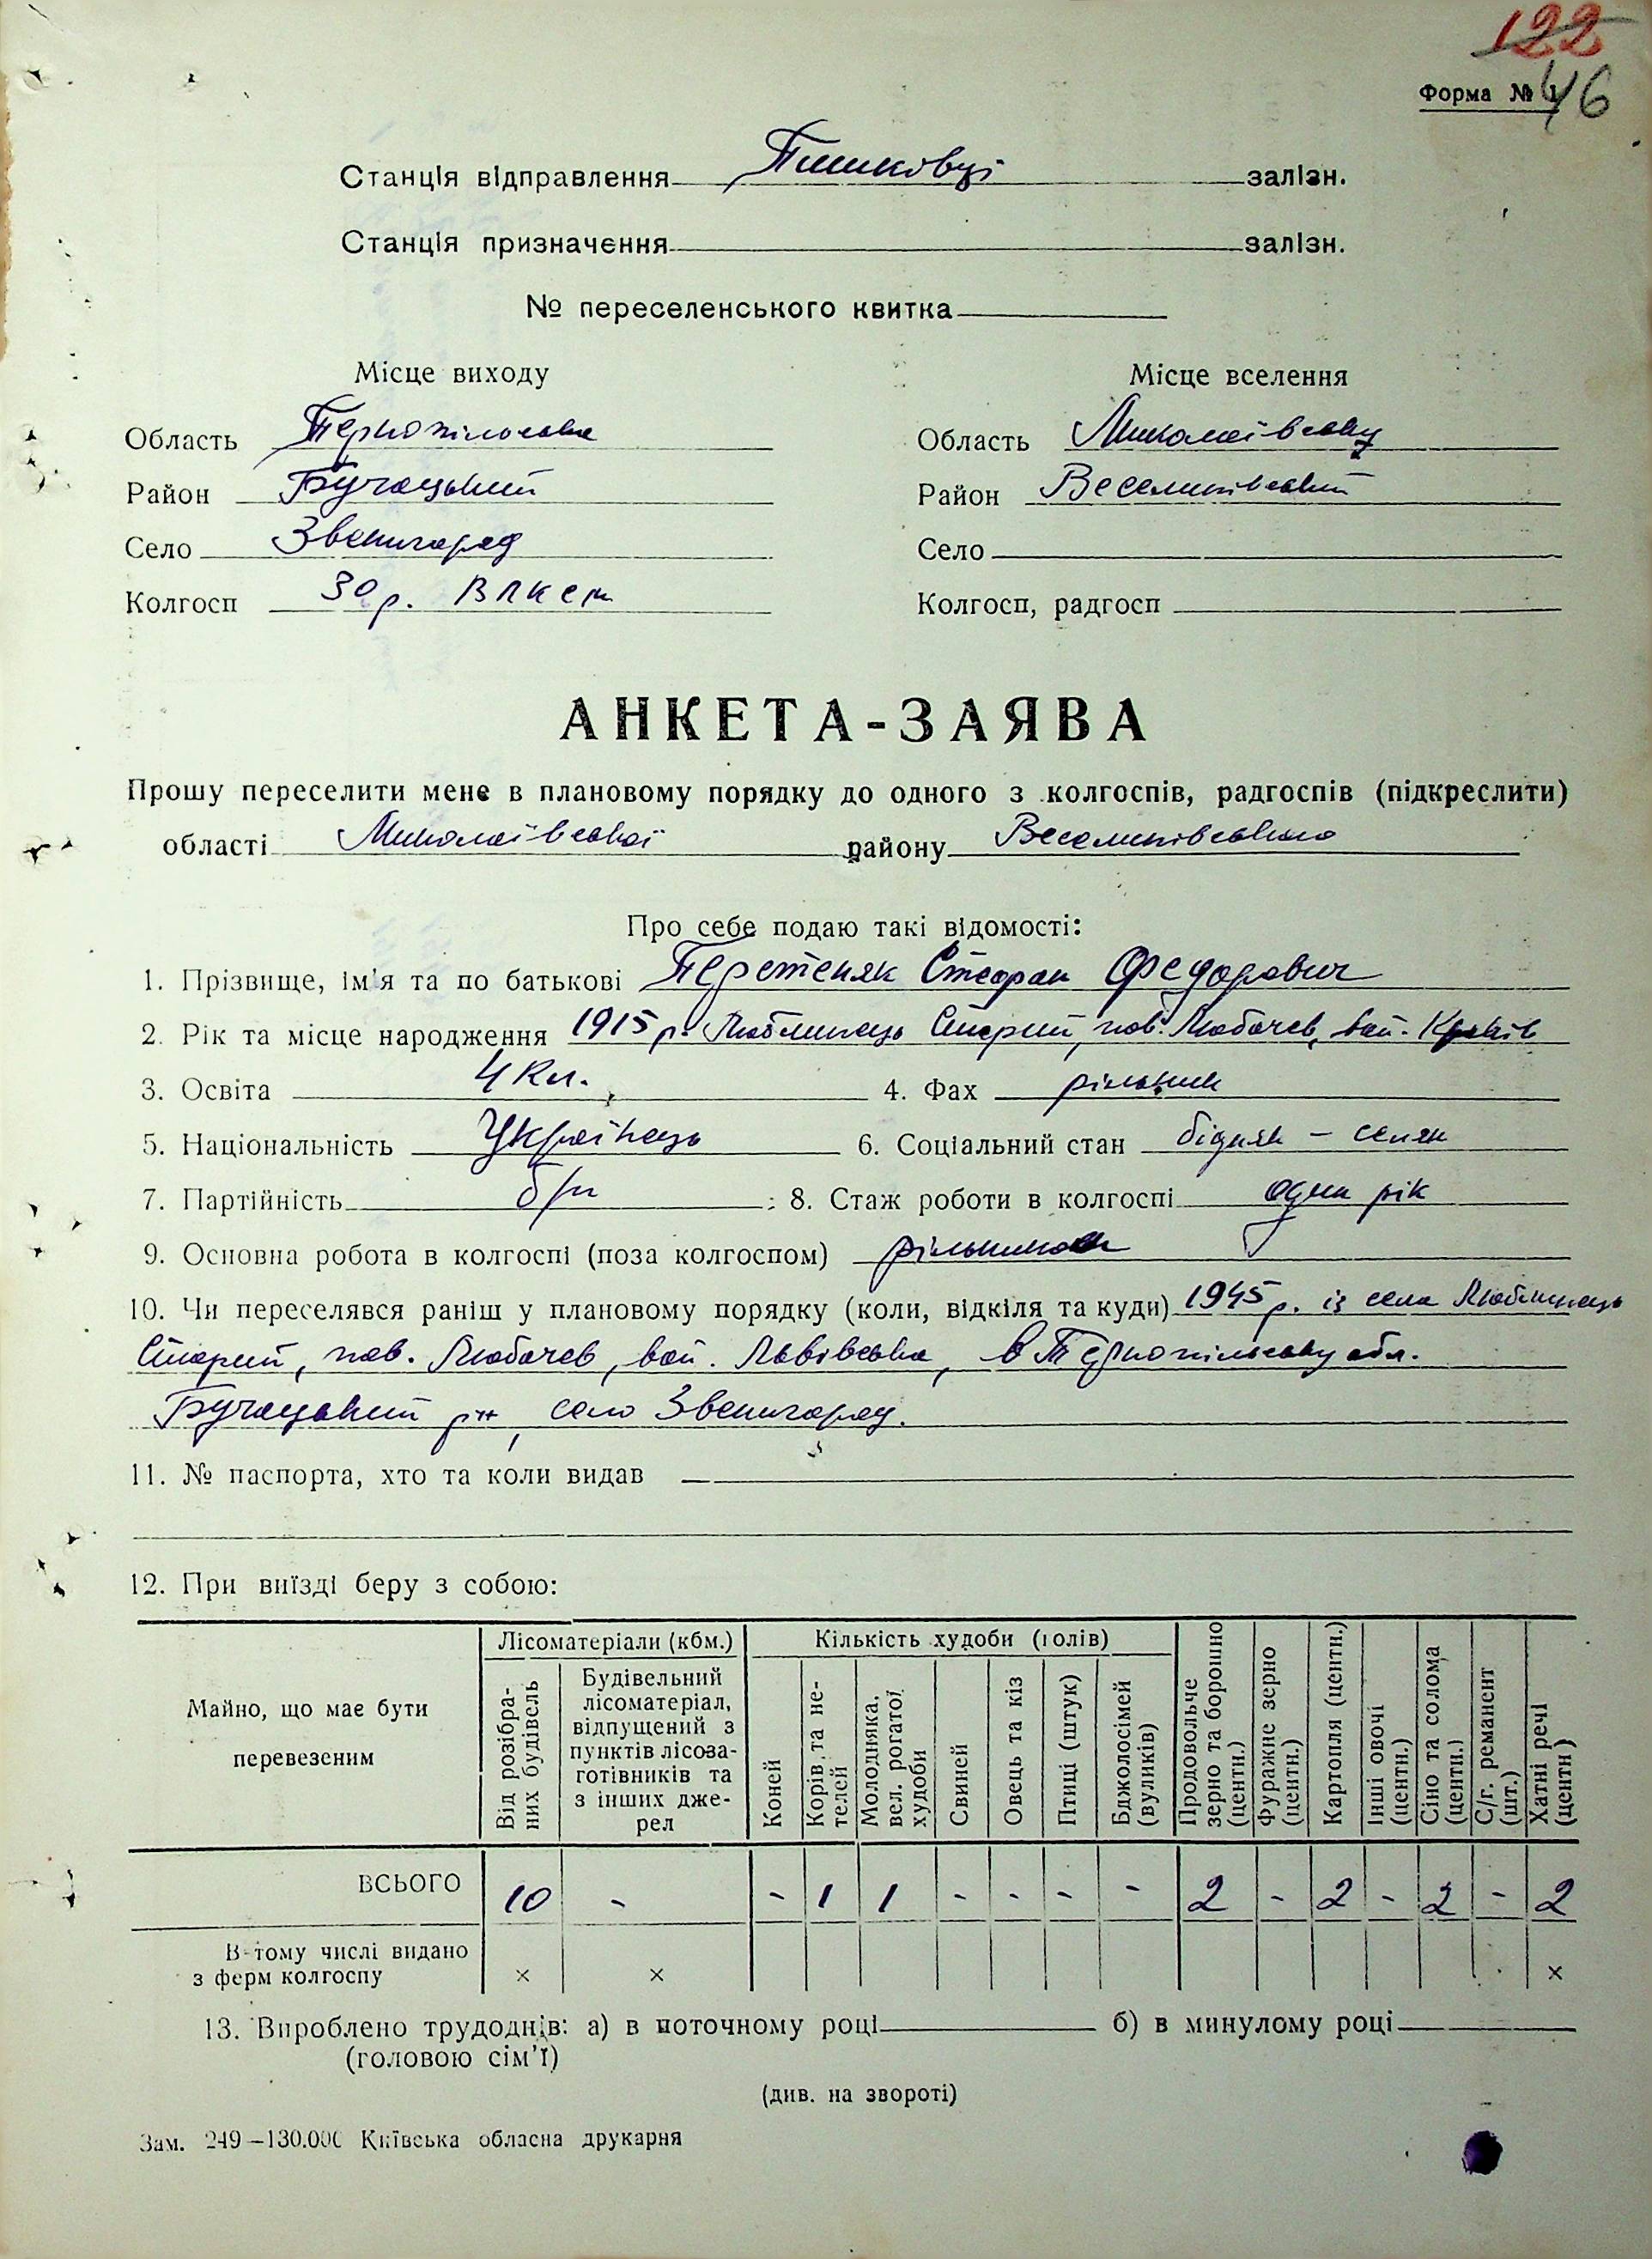 122
Форма № 1 46
Станція відправлення Пишківці залізн.
Станція призначення залізн.
№ переселенського квитка
Місце виходу Місце вселення
Область Тернопільська Область Миколаївську
Район Бучацький Район Веселинівський
Село Звенигород Село
Колгосп 30 р. ВЛКСМ Колгосп, радгосп
АНКЕТА-ЗАЯВА
Прошу переселити мене в плановому порядку до одного з колгоспів, радгоспів (підкреслити)
області Миколаївської району Веселинівського
Про себе подаю такі відомості:
1. Прізвище, ім'я та по батькові Перетеняк Стефан Федорович
2. Рік та місце народження 1915 р. Люблинець Старий, пов. Любачев, вой. Краків
3. Освіта 4 кл. 4. Фах рільник
5. Національність Українець 6. Соціальний стан бідняк - селян
7. Партійність б/п 8. Стаж роботи в колгоспі один рік
9. Основна робота в колгоспі (поза колгоспом)
10. Чи переселявся раніш у плановому порядку (коли, відкіля та куди) 1945 р. із села Люблинець
Старий, пов. Любачев, вой. Львівська, в Тернопільську обл.
Бучацький р-н, село Звенигород.
11. № паспорта, хто та коли видав —
12. При виїзді беру з собою:
Майно, що має бути перевезеним
Лісоматеріали (кбм.) Кількість худоби (голів)
Від розібраних будівель
Будівельний лісоматеріал, відпущений з пунктів лісозаготівників та з інших джерел
Коней
Корів та нетелей
Молодняка, вел. рогатої худоби
Свиней
Овець та кіз
Птиці (штук)
Бджолосімей (вуликів)
Продовольче зерно та борошно (центн.)
Фуражне зерно (центн.)
Картопля (центн.)
Інші овочі (центн.)
Сіно та солома (центн.)
С/г. реманент (шт.)
Хатні речі (центн)
ВСЬОГО 10 - - 1 1 - - - - 2 - 2 - 2 - 2
В тому числі видано
з ферм колгоспу × × ×
13. Вироблено трудоднів: а) в поточному році б) в минулому році
(головою сім'ї)
(див. на звороті)
Зам. 249—130.000 Київська обласна друкарня